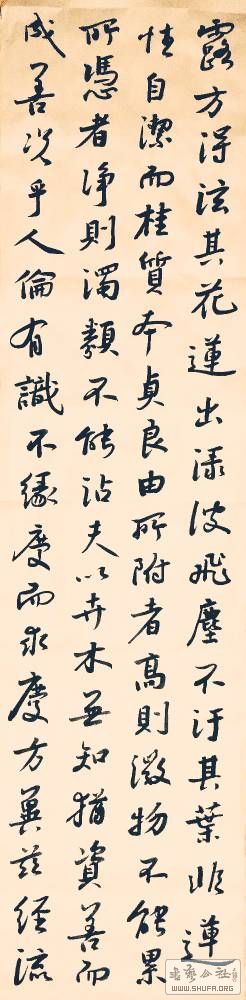 露方得泫其花蓮出渌波飛塵不汙其葉非蓮
性自潔而桂質本貞良由所附者高則微物不能累
所憑者淨則濁類不能沾夫以卉木無知猶資善而
成善況乎人倫有識不緣慶而求慶方冀茲經流
WWW.SHUFA.ORG